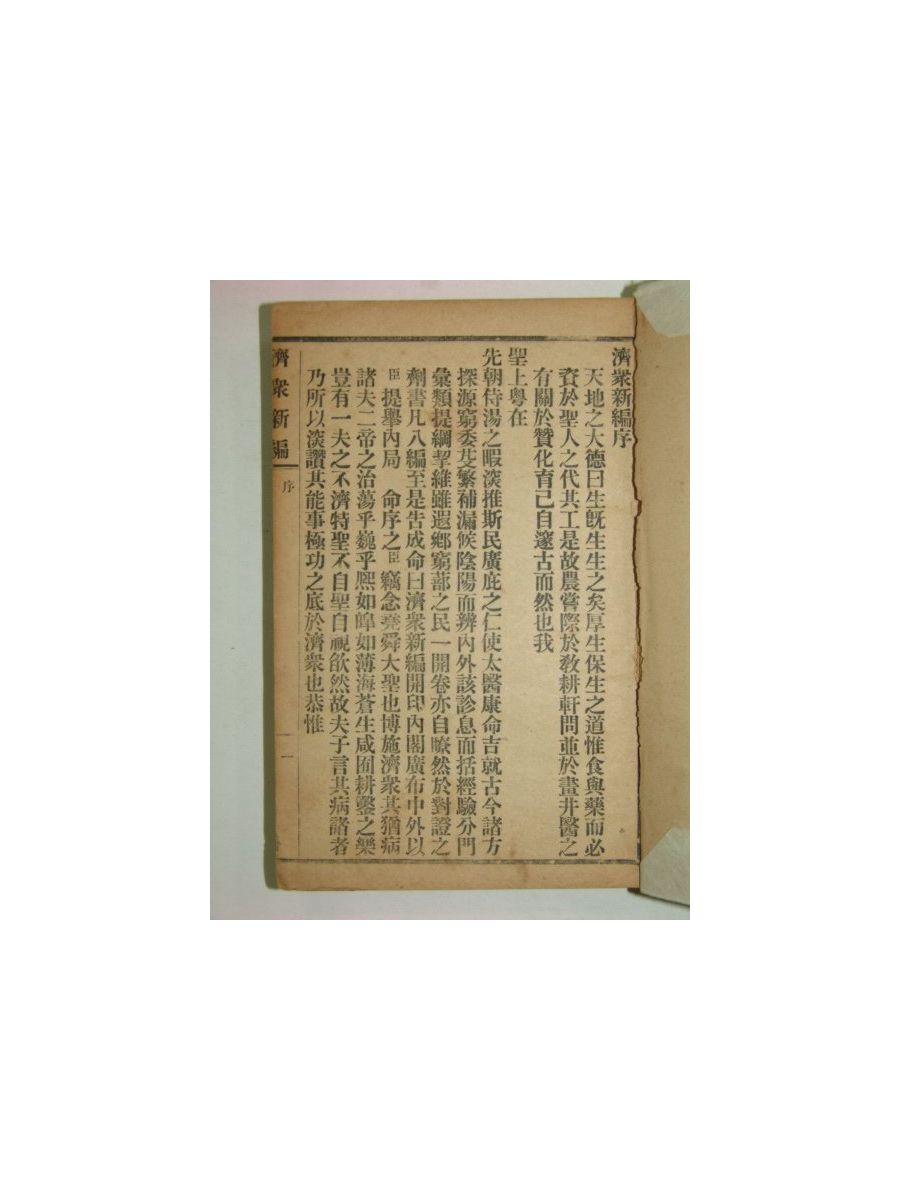 濟衆新編序
天地之大德曰生旣生生之矣厚生保生之道惟食與藥而必
資於聖人之代其工是故農嘗際於敎耕軒問並於畫井醫之
有關於贊化育已自邃古而然也我
聖上粤在
先朝侍湯之暇深推斯民廣庇之仁使太醫康命吉就古今諸方
探源窮委芟繁補漏候陰陽而辨內外該診息而括經驗分門
彙類提綱挈維雖遐鄉窮蔀之民一開卷亦自瞭然於對證之
劑書凡八編至是告成命曰濟衆新編開印內閣廣布中外以
臣提擧內局 命序之臣竊念堯舜大聖也博施濟衆其猶病
諸夫二帝之治蕩乎巍乎熙如皥如薄海蒼生咸囿耕鑿之樂
豈有一夫之不濟特聖不自聖自視欿然故夫子言其病諸者
乃所以深讚其能事極功之底於濟衆也恭惟
濟衆新編 序 一